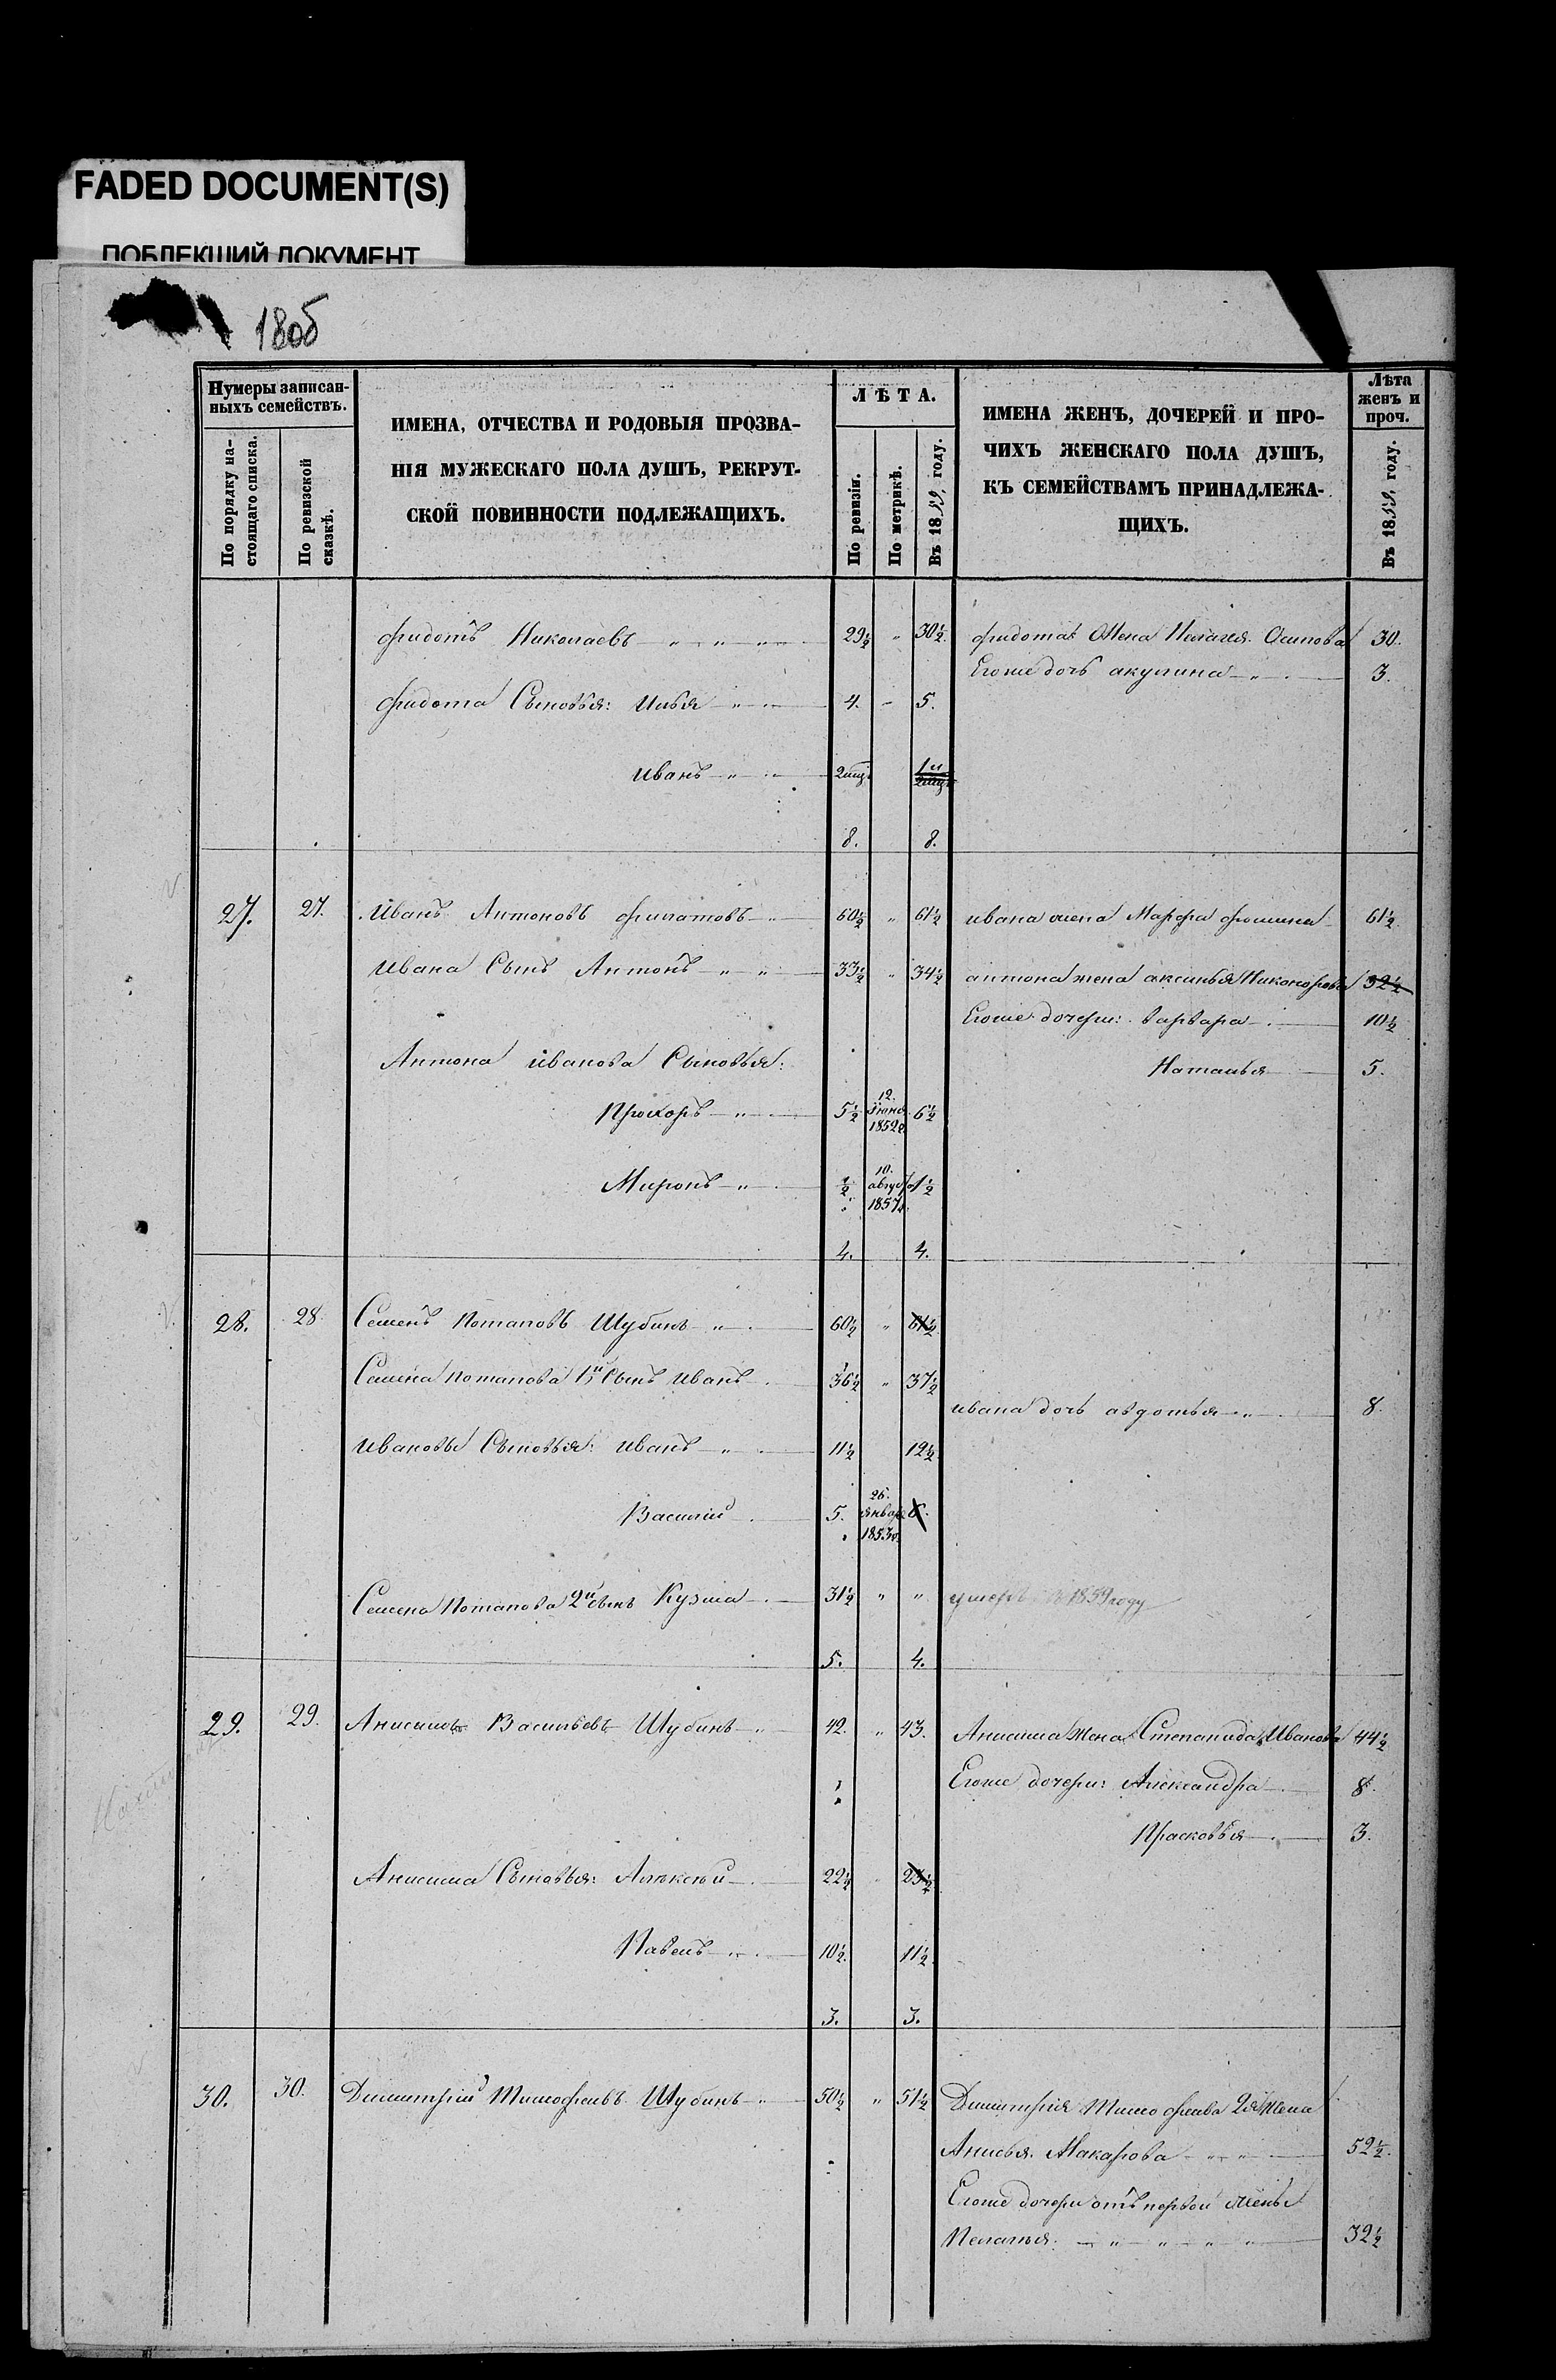 FADED DOCUMENT(S)
ПОБЛЕКШИЙ ДОКУМЕНТ
180б
Нумеры записан-
ныхъ семействъ.
По порядку на-
стоящаго списка.
По ревизской
сказкѣ.
ИМЕНА, ОТЧЕСТВА И РОДОВЫЯ ПРОЗВА-
НІЯ МУЖЕСКАГО ПОЛА ДУШЪ, РЕКРУТ-
СКОЙ ПОВИННОСТИ ПОДЛЕЖАЩИХЪ.
ЛѢТА.
По ревизіи.
По метрикѣ.
Въ 1859, году.
ИМЕНА ЖЕНЪ, ДОЧЕРЕЙ И ПРО-
ЧИХЪ ЖЕНСКАГО ПОЛА ДУШЪ,
КЪ СЕМЕЙСТВАМЪ ПРИНАДЛЕЖА-
ЩИХЪ.
Лѣта
женъ и
проч.
Въ 1859, году.
Фидотъ Николаевъ 29½ " 30½ Фидота Жена Пелагея Осипова 30.
Егоже дочь акулина 3.
Фидота Сыновья: Илья 4. - 5.
Иванъ 2мщ. 1 и 2мщ.
8. 8.
27. 27. Иванъ Антоновъ Филатовъ 60½ " 61½ ивана жена Марфа Фомина 61½
Ивана Сынъ Антонъ 33½ " 34½ антона жена аксинья Никонорова 32½
Егоже дочери: варвара 10½
Антона иванова Сыновья: Наталья 5.
Прохоръ 5½ 12. Іюня 1852г. 6½
Миронъ ½ 10. август 1857г. 1½
4. 4.
28. 28 Семенъ Потаповъ Шубинъ 60½ " 61½
Семена потапова 1й Сынъ Иванъ 36½ " 37½
ивана дочь авдотья 8.
Ивановы Сыновья: Иванъ 11½ 12½
Василій 5. 26. январ. 1853г. 6.
Семена Потапова 2й сынъ Кузма 31½ " " умеръ в 1859 году
5. 4.
29. 29. Анисимъ Васильевъ Шубинъ 42. " 43. Анисима Жена Степанида Иванова 44½
Егоже дочери: Александра 8.
Прасковья 3.
Анисима Сыновья: Алексѣй 22½ 23½
Павелъ 10½ 11½
3. 3.
30. 30. Димитрій Тимофеевъ Шубинъ 50½ " 51½ Димитрія Тимофеева 2я Жена
Анисья Макарова 52½
Егоже дочери отъ первой жены
Пелагея 32½